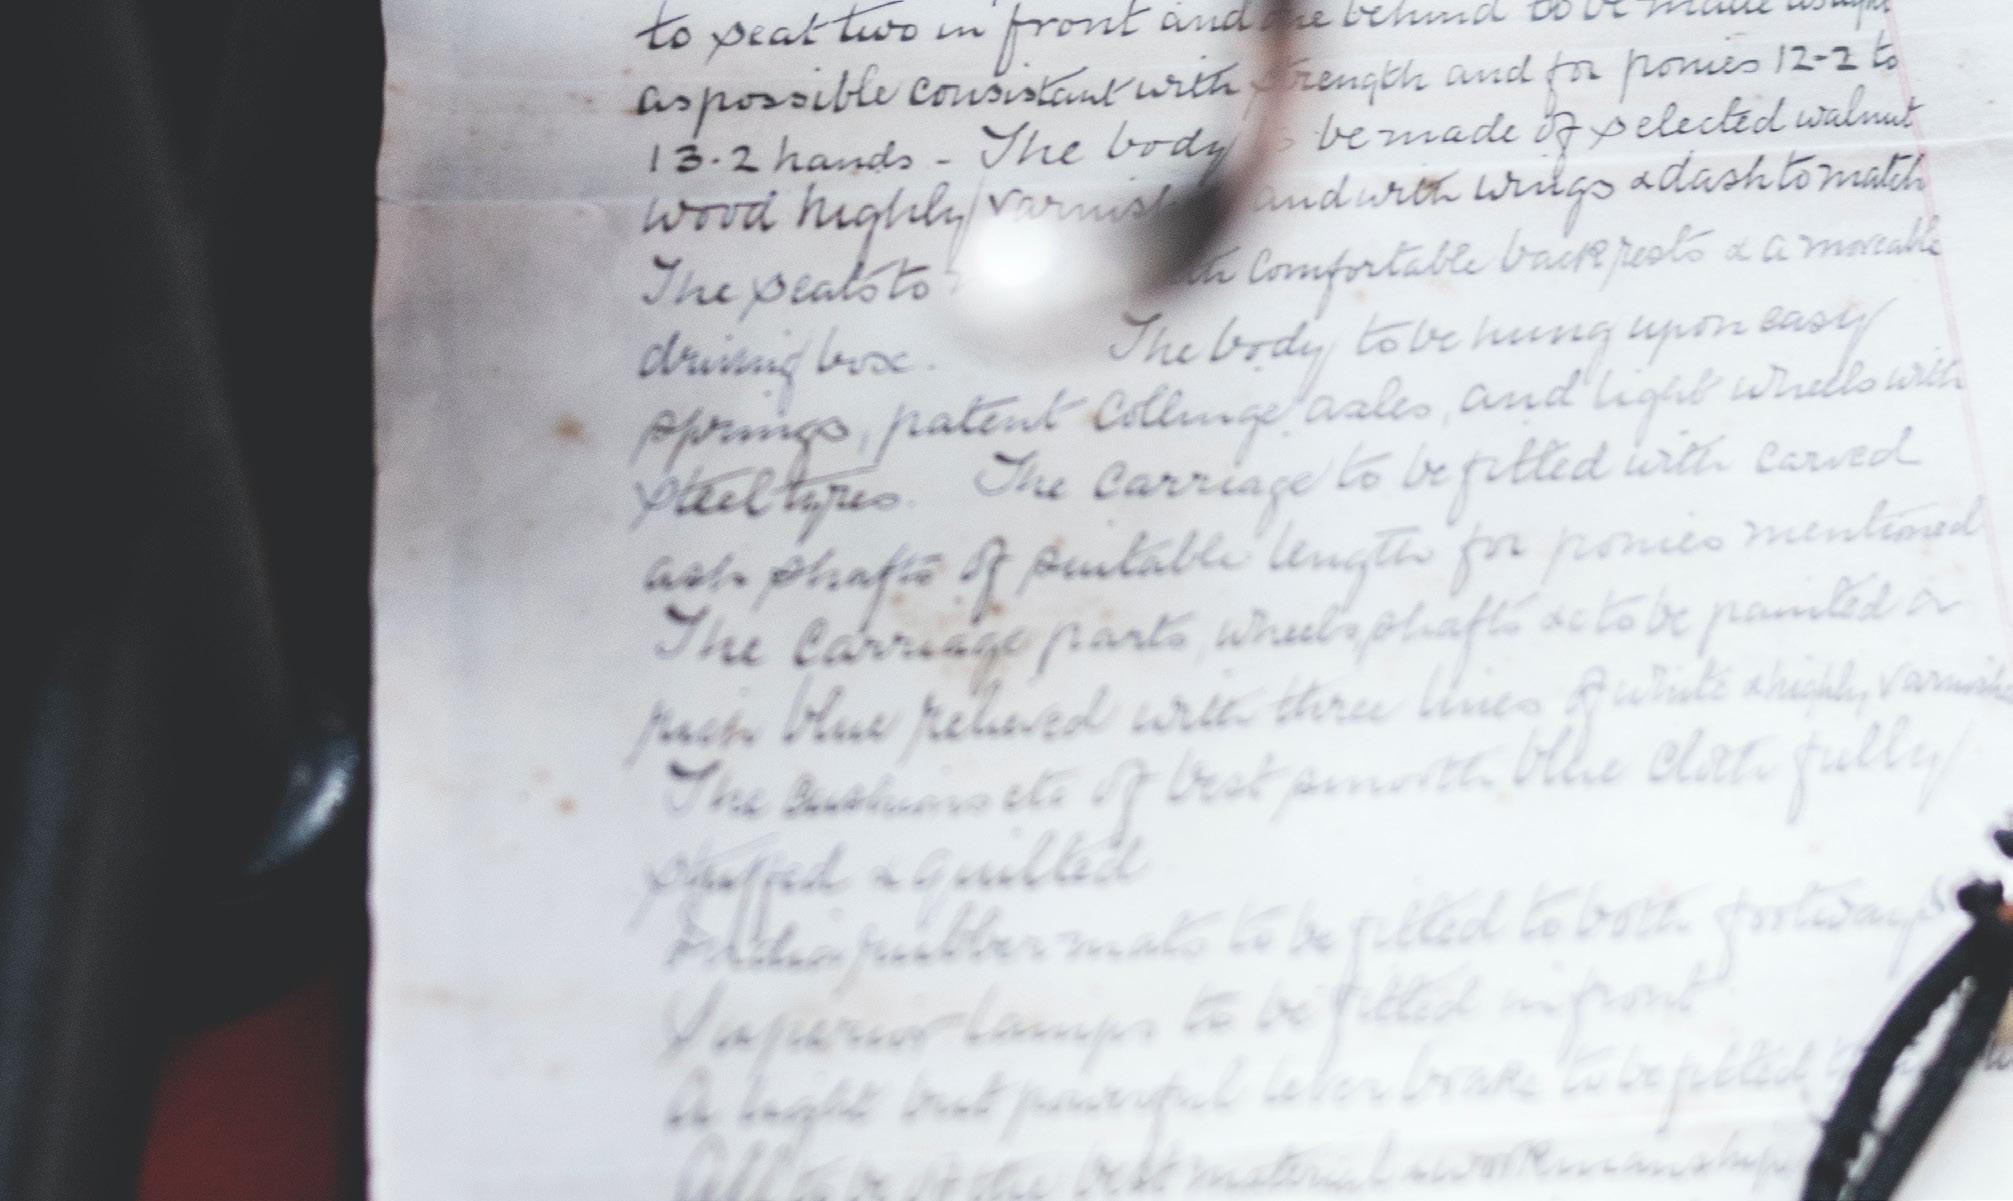 to seat two in front and one behind to be made as light
as possible consistant with strength and for ponies 12-2 to
13.2 hands - The body be made of selected walnut
wood highly varnish and with wings & dash to match
The seats to with comfortable back rests & a moveable
driving box. The body to be hung upon easy
springs, patent Collinge axles, and light wheels with
steel tyres. The carriage to be fitted with carved
ash shafts of suitable length for ponies mentioned
The carriage parts, wheels, shafts &c to be painted in
rich blue relieved with three lines of white & highly varnish
The cushions etc of best smooth blue cloth fully
stuffed & quilted
India rubber mats to be fitted to both footways
Superior lamps to be fitted in front
A light but powerful lever brake to be fitted
All to be of the best material & workmanship